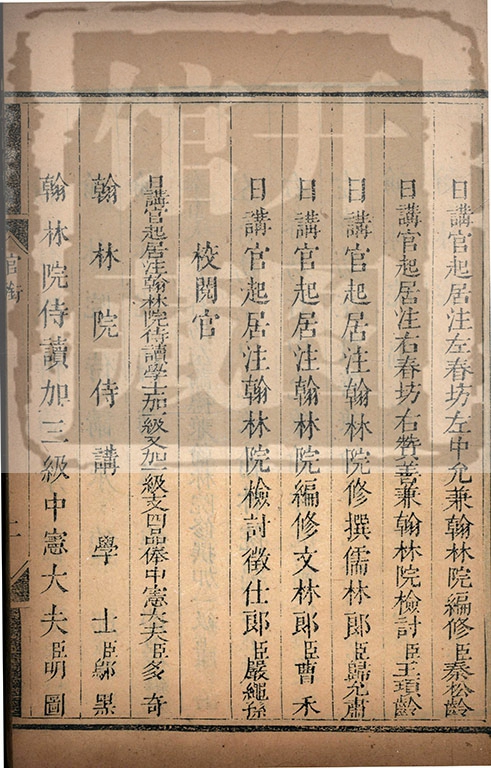 日講官起居注左春坊左中允兼翰林院編修臣秦松齡
日講官起居注右春坊右贊善兼翰林院檢討臣王頊齡
日講官起居注翰林院修撰儒林郎臣歸允肅
日講官起居注翰林院編修文林郎臣曹禾
日講官起居注翰林院檢討徵仕郎臣嚴繩孫
校閱官
日講官起居注翰林院侍讀學士加一級又加一級支四品俸中憲大夫臣多奇
翰林院侍講學士臣鄔黑
翰林院侍讀加三級中憲大夫臣明圖
官銜